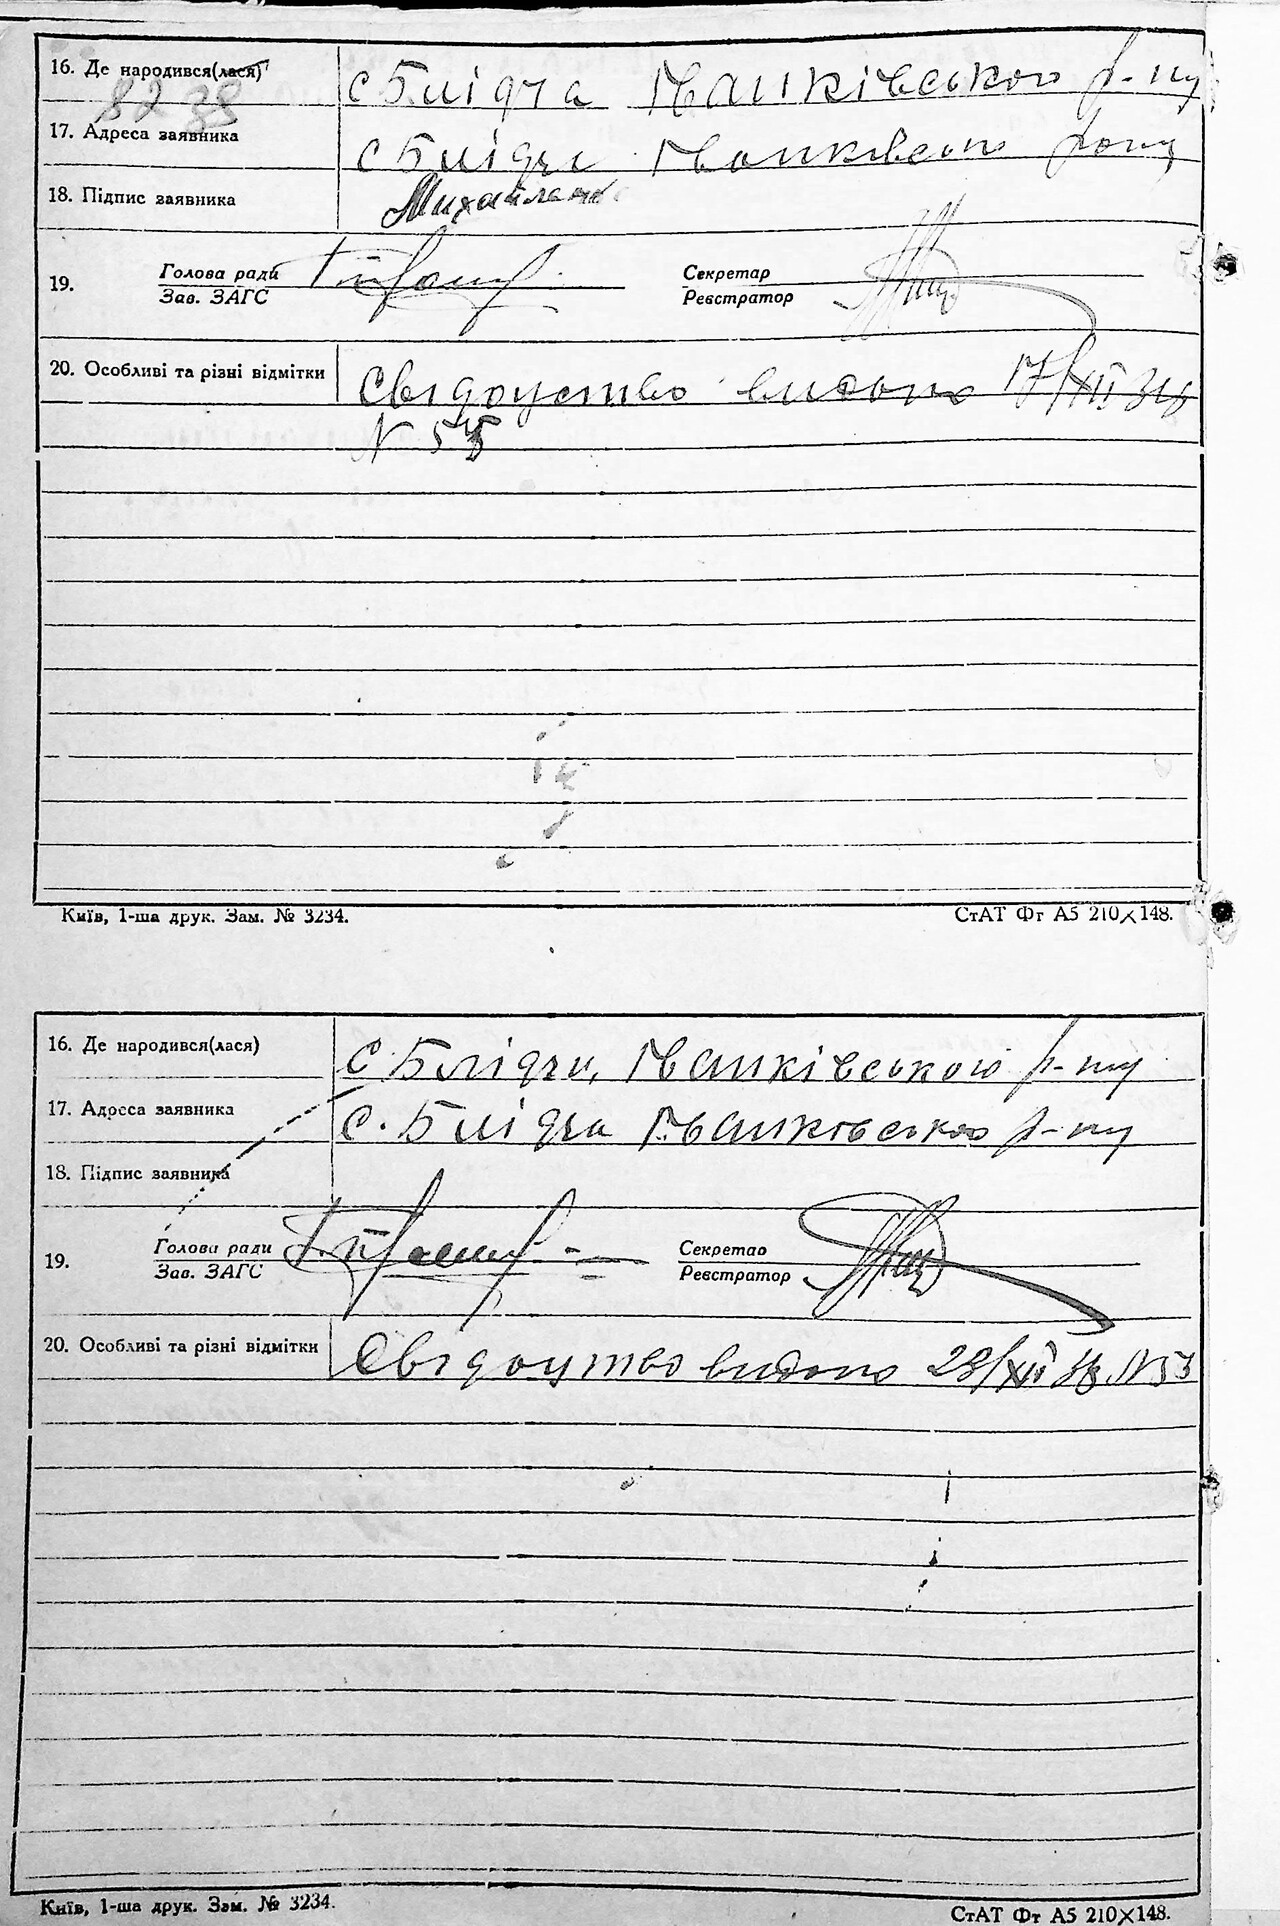 16. Де народився(лася)
с Блідча Іванківського р-ну
82 38
17. Адреса заявника
с Блідча Іванківського р-ну
18. Підпис заявника
Михайленко
19. Голова ради
Зав. ЗАГС
Секретар
Реєстратор
20. Особливі та різні відмітки
Свідоцтво видано 17/XII 34р
N
Київ, 1-ша друк. Зам. № 3234.
СтАТ Фт А5 210×148.
16. Де народився(лася)
с. Блідча, Іванківського р-ну
17. Адреса заявника
с. Блідча Іванківського р-ну
18. Підпис заявника
19. Голова ради
Зав. ЗАГС
Секретар
Реєстратор
20. Особливі та різні відмітки
Свідоцтво видано 28/XII N 53
Київ, 1-ша друк. Зам. № 3234.
СтАТ Фт А5 210×148.